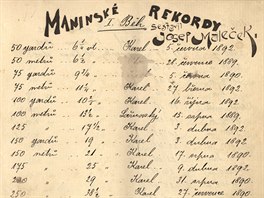 MANINSKÉ REKORDY
I. Běh. sestavil Josef Maleček.
50 yardů 6½ vt. Karel 5. června 1892.
50 metrů 6⅘ " " 28. července 1889.
75 yardů 9¼ " " 5. června 1890.
75 metrů " Karel 27. března 1892.
100 yardů " Karel 16. října 1892.
100 metrů " 15. srpna 1889.
125 " 17½ " Karel 3. dubna 1892.
150 yardů 19 " Karel 3. dubna 1892.
150 metrů 21 " Karel 17. srpna 1890.
175 " 25 " Karel 9. dubna 1892.
200 " 29 " Karel 31. srpna 1890.
250 " 38½ " Karel 27. července 1890.